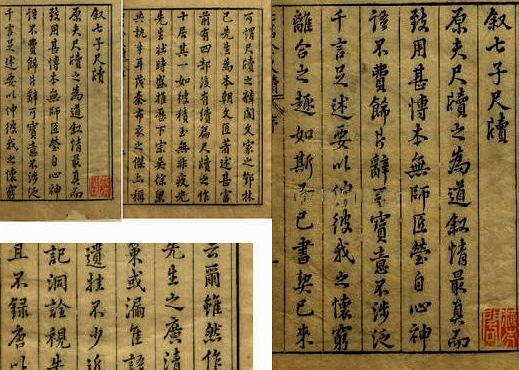 叙七子尺牘
原夫尺牘之為道叙情最真而
致用甚博本無師匠瑩自心神
語不費飾片辭可寶意不涉泛
千言足述要以伸彼我之懷窮
可謂尺牘之麟閣文家之鄧林
已先生為本朝文匠著述甚富
前有四部後有續篇尺牘之作
十居其一如彼積玉無非夜光
先生狀時盛推歷下宗吳徐梁
共執牛耳茂秦布衣之傑亦稱
叙七子尺牘
原夫尺牘之為道叙情最真而
致用甚博本無師匠瑩自心神
語不費飾片辭可寶意不涉泛
千言足述要以伸彼我之懷窮
離合之趣如斯而已書契已来
云爾雖然作
先生之廣清
策或漏隹語
遺挂不少近
記洞詮視先
且不録唐以